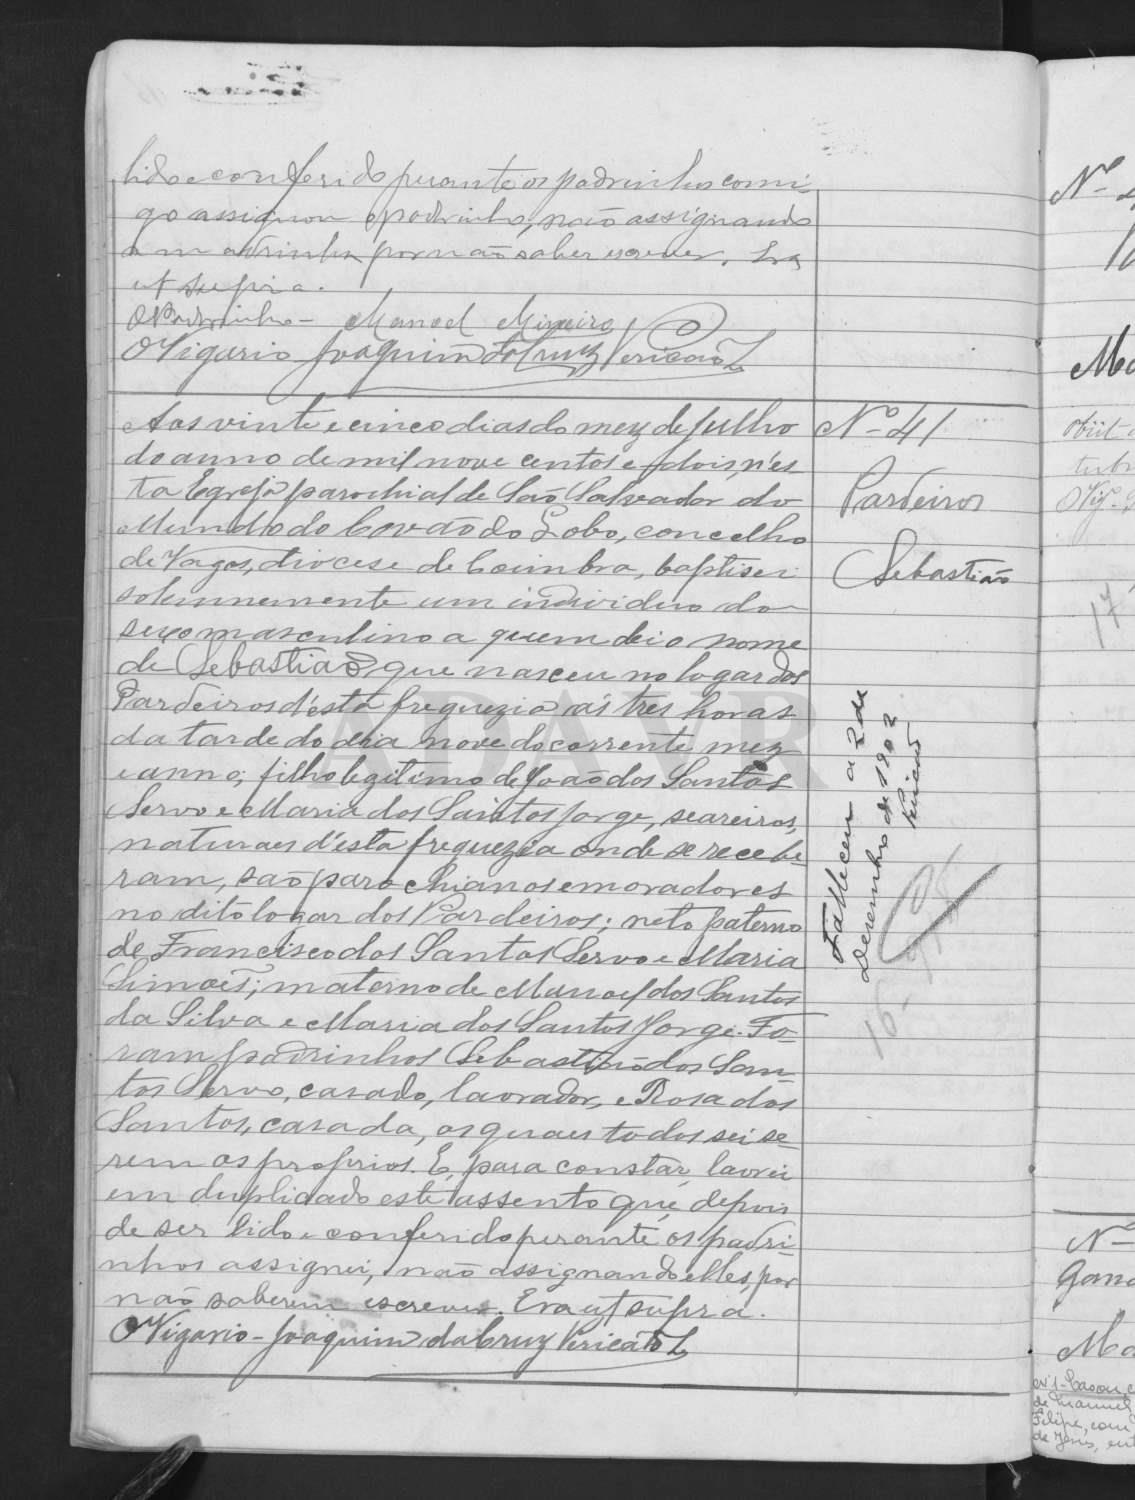 lido e conferido perante os padrinhos comi-
go assignou o padrinho, não assignando
a madrinha por não saber escrever. Era
ut supra.
O Padrinho - Manoel Mineiro
O Vigario Joaquim da Cruz Pericão
Aos vinte e cinco dias do mez de Julho
do anno de mil nove centos e dois, n'es-
ta Egreja parochial de São Salvador do
Mundo do Covão do Lobo, concelho
de Vagos, diocese de Coimbra, baptisei
solemnemente um individuo do
sexo masculino a quem dei o nome
de Sebastião que nasceu no logar dos
Pardeiros d'esta freguezia ás tres horas
da tarde do dia nove do corrente mez
e anno; filho legitimo de João dos Santos
Servo e Maria dos Santos Jorge, seareiros,
naturaes d'esta freguezia onde se recebe-
ram, são parochianos e moradores
no dito logar dos Pardeiros; neto paterno
de Francisco dos Santos Servo e Maria
Simões; materno de Manoel dos Santos
da Silva e Maria dos Santos Jorge. Fo-
ram padrinhos Sebastião dos San-
tos Servo, casado, lavrador, e Rosa dos
Santos, casada, os quaes todos sei se-
rem os proprios. E, para constar, lavrei
em duplicado este assento que, depois
de ser lido e conferido perante os padri-
nhos assignei, não assignando elles, por
não saberem escrever. Era ut supra.
O Vigario - Joaquim da Cruz Pericão
Nº 41
Pardeiros
Sebastião
Falleceu a 2 de
Dezembro de 1902
Pericão
ADAVR
Nº
Obiit
17
Nº
Nº 1 - Casou
de Manuel
Filipe, com
de Jesus,